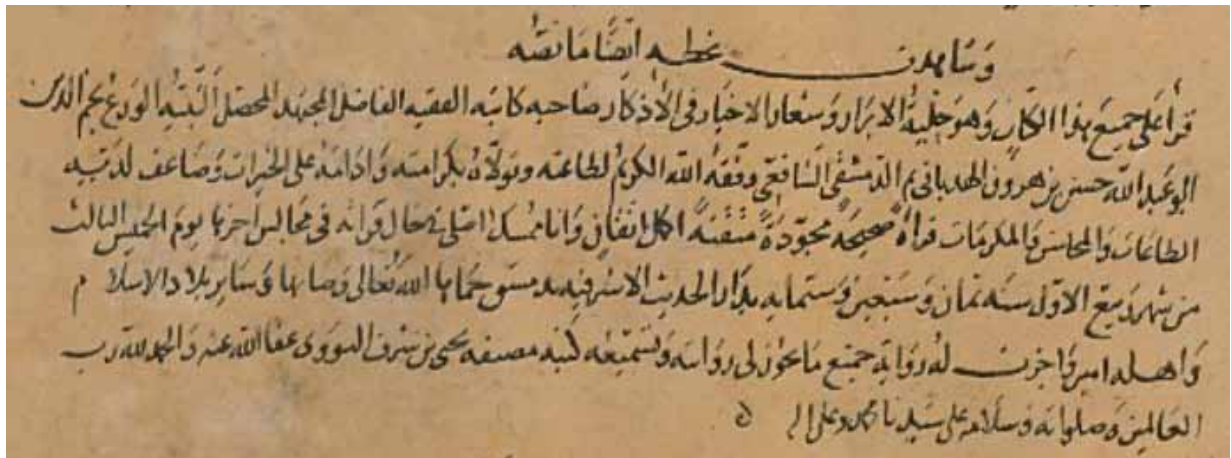 وشاهدت بخطه ايضا ما نصه
قرأ على جميع هذا الكتاب وهو حلية الابرار وشعار الاخيار فى الاذكار صاحبه كاتبه الفقيه الفاضل المجتهد المحصل النبيه الورع نجم الدين
ابو عبد الله حسن بن هرون الهدبانى ثم الدمشقى الشافعى وفقه الله الكريم لطاعته وتولاه بكرامته وادامه على الخيرات وضاعف لديه
الطاعات والمحاسن والمكرمات قراة صحيحة مجودة متقنة اكمل اتقان وانا ممسك اصلى فى حال قراته فى مجالس اخرها يوم الخميس الثالث
من شهر ربيع الاول سنة ثمان وسبعين وستمايه بدار الحديث الاشرفيه بدمشق حماها الله تعالى وصانها وساير بلاد الاسلام
واهله امين واجزت له رواية جميع ما يجوز لى روايته وتسميعه كتبه مصنفه يحيى بن شرف النووى عفا الله عنه والحمد لله رب
العالمين وصلواته وسلامه على سيدنا محمد وعلى اله